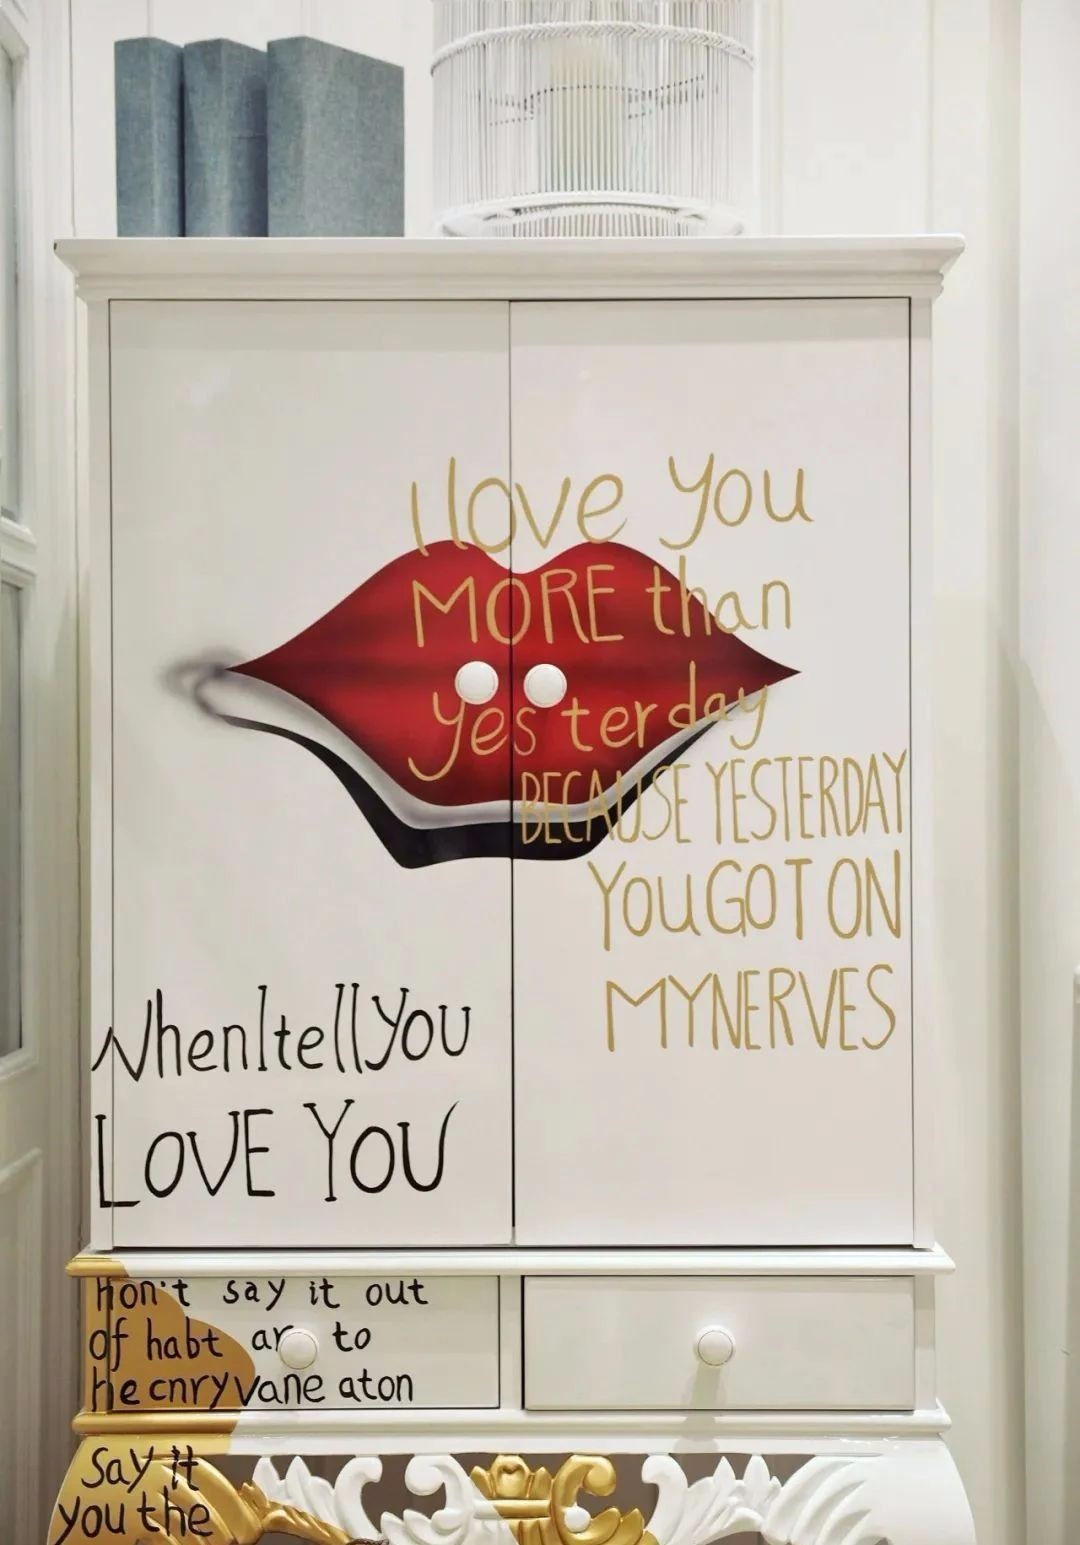 I love You
MORE than
yesterday
BECAUSE YESTERDAY
YOU GOT ON
MY NERVES
When I tell You
LOVE YOU
Hon't say it out
of habt ar to
he cnryvane aton
Say it
you the